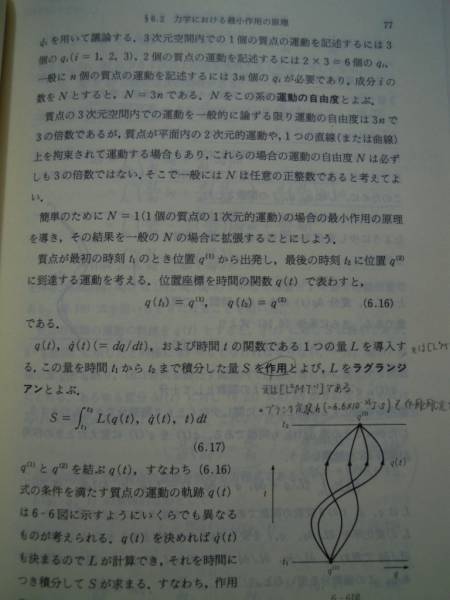 §6.2 力学における最小作用の原理 77
qᵢを用いて議論する．3次元空間内での1個の質点の運動を記述するには3
個の qᵢ(i = 1, 2, 3)，2個の質点の運動を記述するには 2 × 3 = 6 個の qᵢ，
一般に n 個の質点の運動を記述するには 3n 個の qᵢ が必要であり，成分 i の
数を N とすると，N = 3n である．N をこの系の運動の自由度とよぶ．
質点の3次元空間内での運動を一般的に論ずる限り運動の自由度は 3n で
3の倍数であるが，質点が平面内の2次元的運動や，1つの直線(または曲線)
上を拘束されて運動する場合もあり，これらの場合の運動の自由度 N は必ず
しも3の倍数ではない．そこで一般には N は任意の正整数であると考えてよ
い．
簡単のために N = 1(1個の質点の1次元的運動)の場合の最小作用の原理
を導き，その結果を一般の N の場合に拡張することにしよう．
質点が最初の時刻 t₁ のとき位置 q⁽¹⁾ から出発し，最後の時刻 t₂ に位置 q⁽²⁾
に到達する運動を考える．位置座標を時間の関数 q(t) で表わすと，
q(t₁) = q⁽¹⁾, q(t₂) = q⁽²⁾ (6.16)
である．
q(t), q̇(t)(= dq/dt)，および時間 t の関数である1つの量 L を導入す
る．この量を時間 t₁ から t₂ まで積分した量 S を作用とよび，L をラグランジ
アンとよぶ．
S = ∫ₜ₁ᵗ² L(q(t), q̇(t), t) dt
(6.17)
q⁽¹⁾ と q⁽²⁾ を結ぶ q(t)，すなわち (6.16)
式の条件を満たす質点の運動の軌跡 q(t)
は 6-6 図に示すようにいくらでも異なる
ものが考えられる．q(t) を決めれば q̇(t)
も決まるので L が計算でき，それを時間に
つき積分して S が求まる．すなわち，作用
t₂
q⁽²⁾
q(t)
t
t₁
q⁽¹⁾
q
6-6図